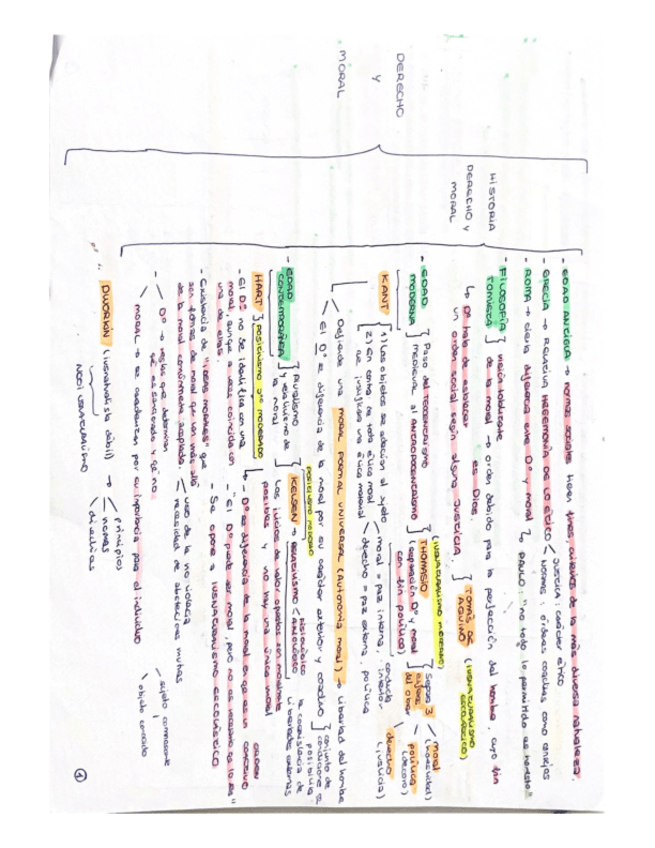 DERECHO
Y
MORAL
HISTORIA
DERECHO Y
MORAL
- EDAD ANTIGUA → normas sociales tienen tres cimientos de la más diversa naturaleza
- GRECIA → RELATIVA HEGEMONÍA DE LO ÉTICO
JUSTICIA: carácter ético
NORMAS: órdenes coactivas como consejos
- ROMA → cierta diferencia entre Dº y moral
PAULO: "no todo lo permitido es honesto"
- FILOSOFÍA
TOMISTA
visión totalizante
de la moral → orden debido para la perfección del hombre, cuyo fin
es Dios.
↳ Dº trata de establecer
un orden social según alguna JUSTICIA
TOMÁS DE
AQUINO
(IUSNATURALISMO
ESCOLÁSTICO)
- EDAD
MODERNA
Paso del TEOCENTRISMO
medieval al ANTROPOCENTRISMO
(IUSNATURALISMO MODERNO)
THOMASIO
(separación Dº y moral
con fin político)
Separa 3
esferas
del obrar
moral
(honestidad)
política
(decoro)
derecho
(justicia)
KANT
1) Los objetos se adecúan al sujeto
2) En contra de toda ética moral
que justifique una ética material
moral = paz interna, interno
derecho = paz externa, política
conducta
Defiende una MORAL FORMAL UNIVERSAL (Autonomía moral) → libertad del hombre
El Dº se diferencia de la moral por su carácter exterior y coactivo
conjunto de
condiciones q.
posibilita
la coexistencia de
libertades externas
- EDAD
CONTEMPORÁNEA
Pluralismo
y relativismo de
la moral
KELSEN → RELATIVISMO
AXIOLÓGICO
POSITIVISMO
Los juicios de valor opuestos son moralmente
posibles y no hay una única moral
- Dº se diferencia de la moral en que es un
ORDEN
COACTIVO
- "El Dº puede ser moral, pero no es necesario que lo sea"
- Se opone a IUSNATURALISMO ESCOLÁSTICO
HART
POSITIVISMO Jº MODERADO
- El Dº no se identifica con una
moral, aunque a veces coincida con
una de ellas
- Existencia de "IDEAS MORALES" que
son formas de moral que van más allá
de la moral comúnmente aceptada
uso de la no violencia
necesidad de abstenciones mutuas
Dº → reglas que determinan
qué es sancionado y qué no.
moral → se caracterizan por su importancia para el individuo
sujeto
objeto
DWORKIN (iusnaturalista débil) →
principios
normas
directrices
NO IUSNATURALISMO
①